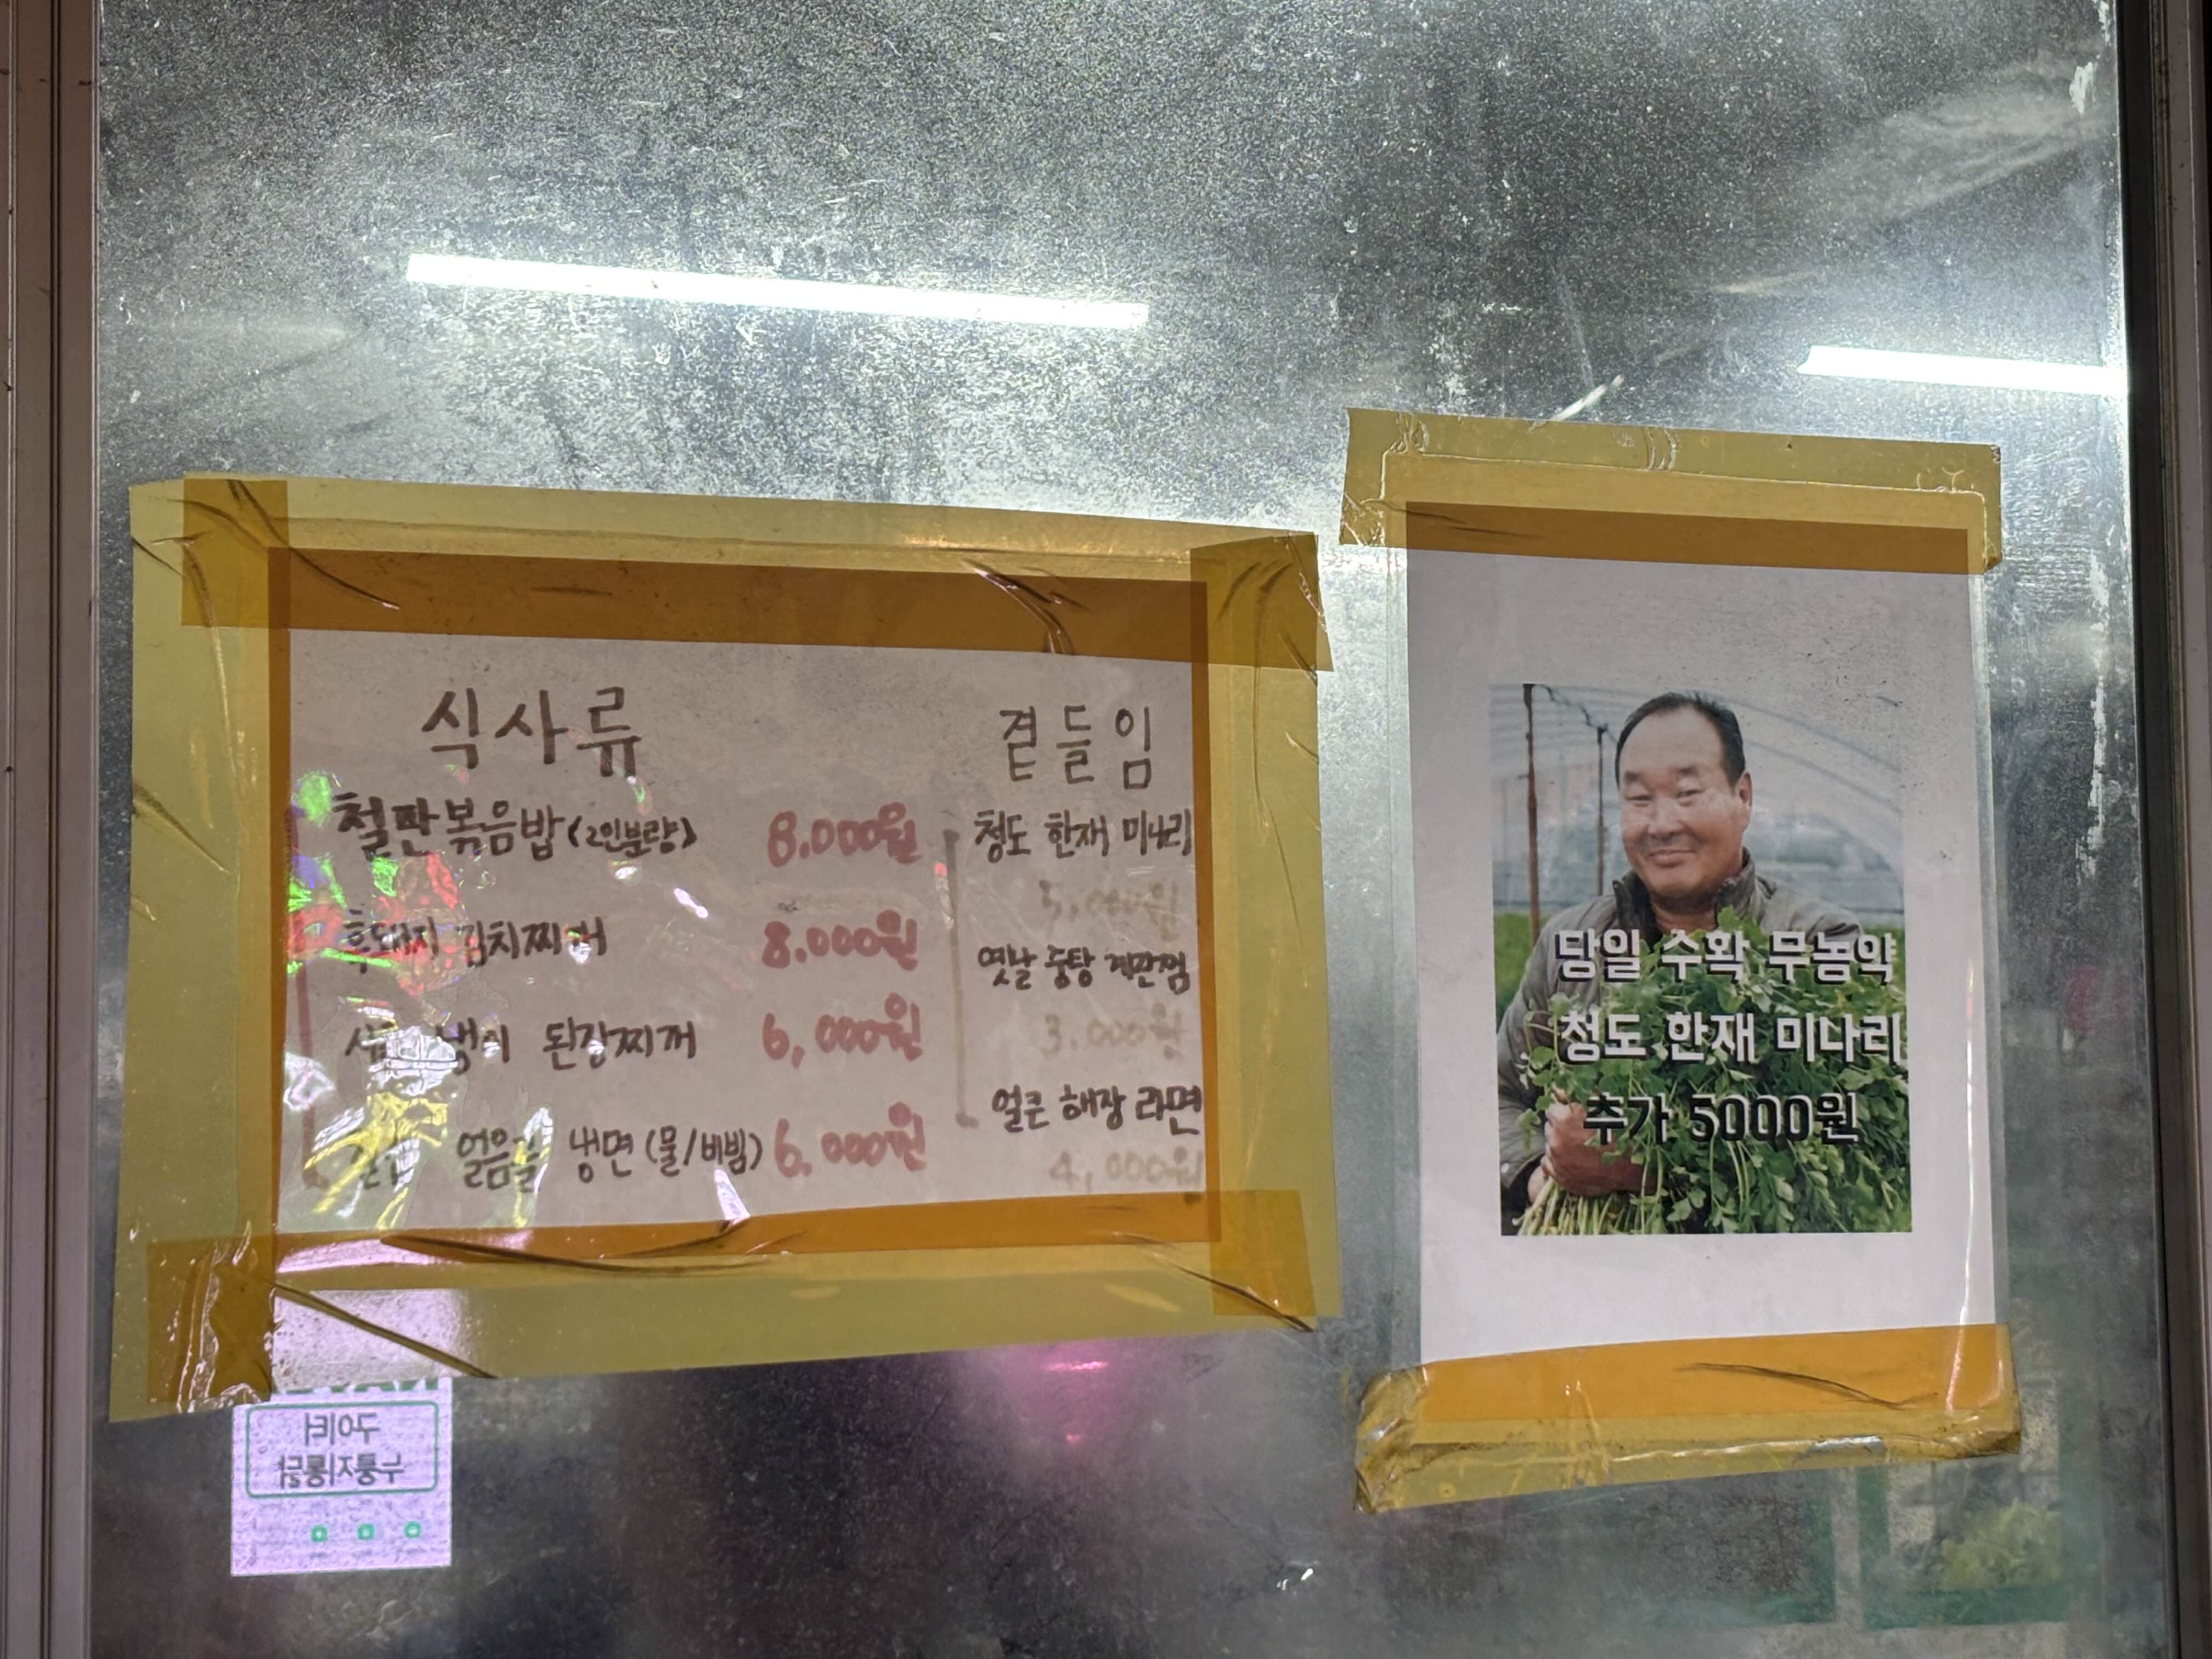 식사류
철판볶음밥(2인분량) 8.000원
흑돼지 김치찌개 8.000원
냉이 된장찌개 6,000원
얼음골 냉면(물/비빔) 6.000원
곁들임
청도 한재 미나리
5,000원
옛날 중탕 계란찜
3.000원
얼큰 해장 라면
4,000원
당일 수확 무농약
청도 한재 미나리
추가 5000원
구이터
누룽지통닭